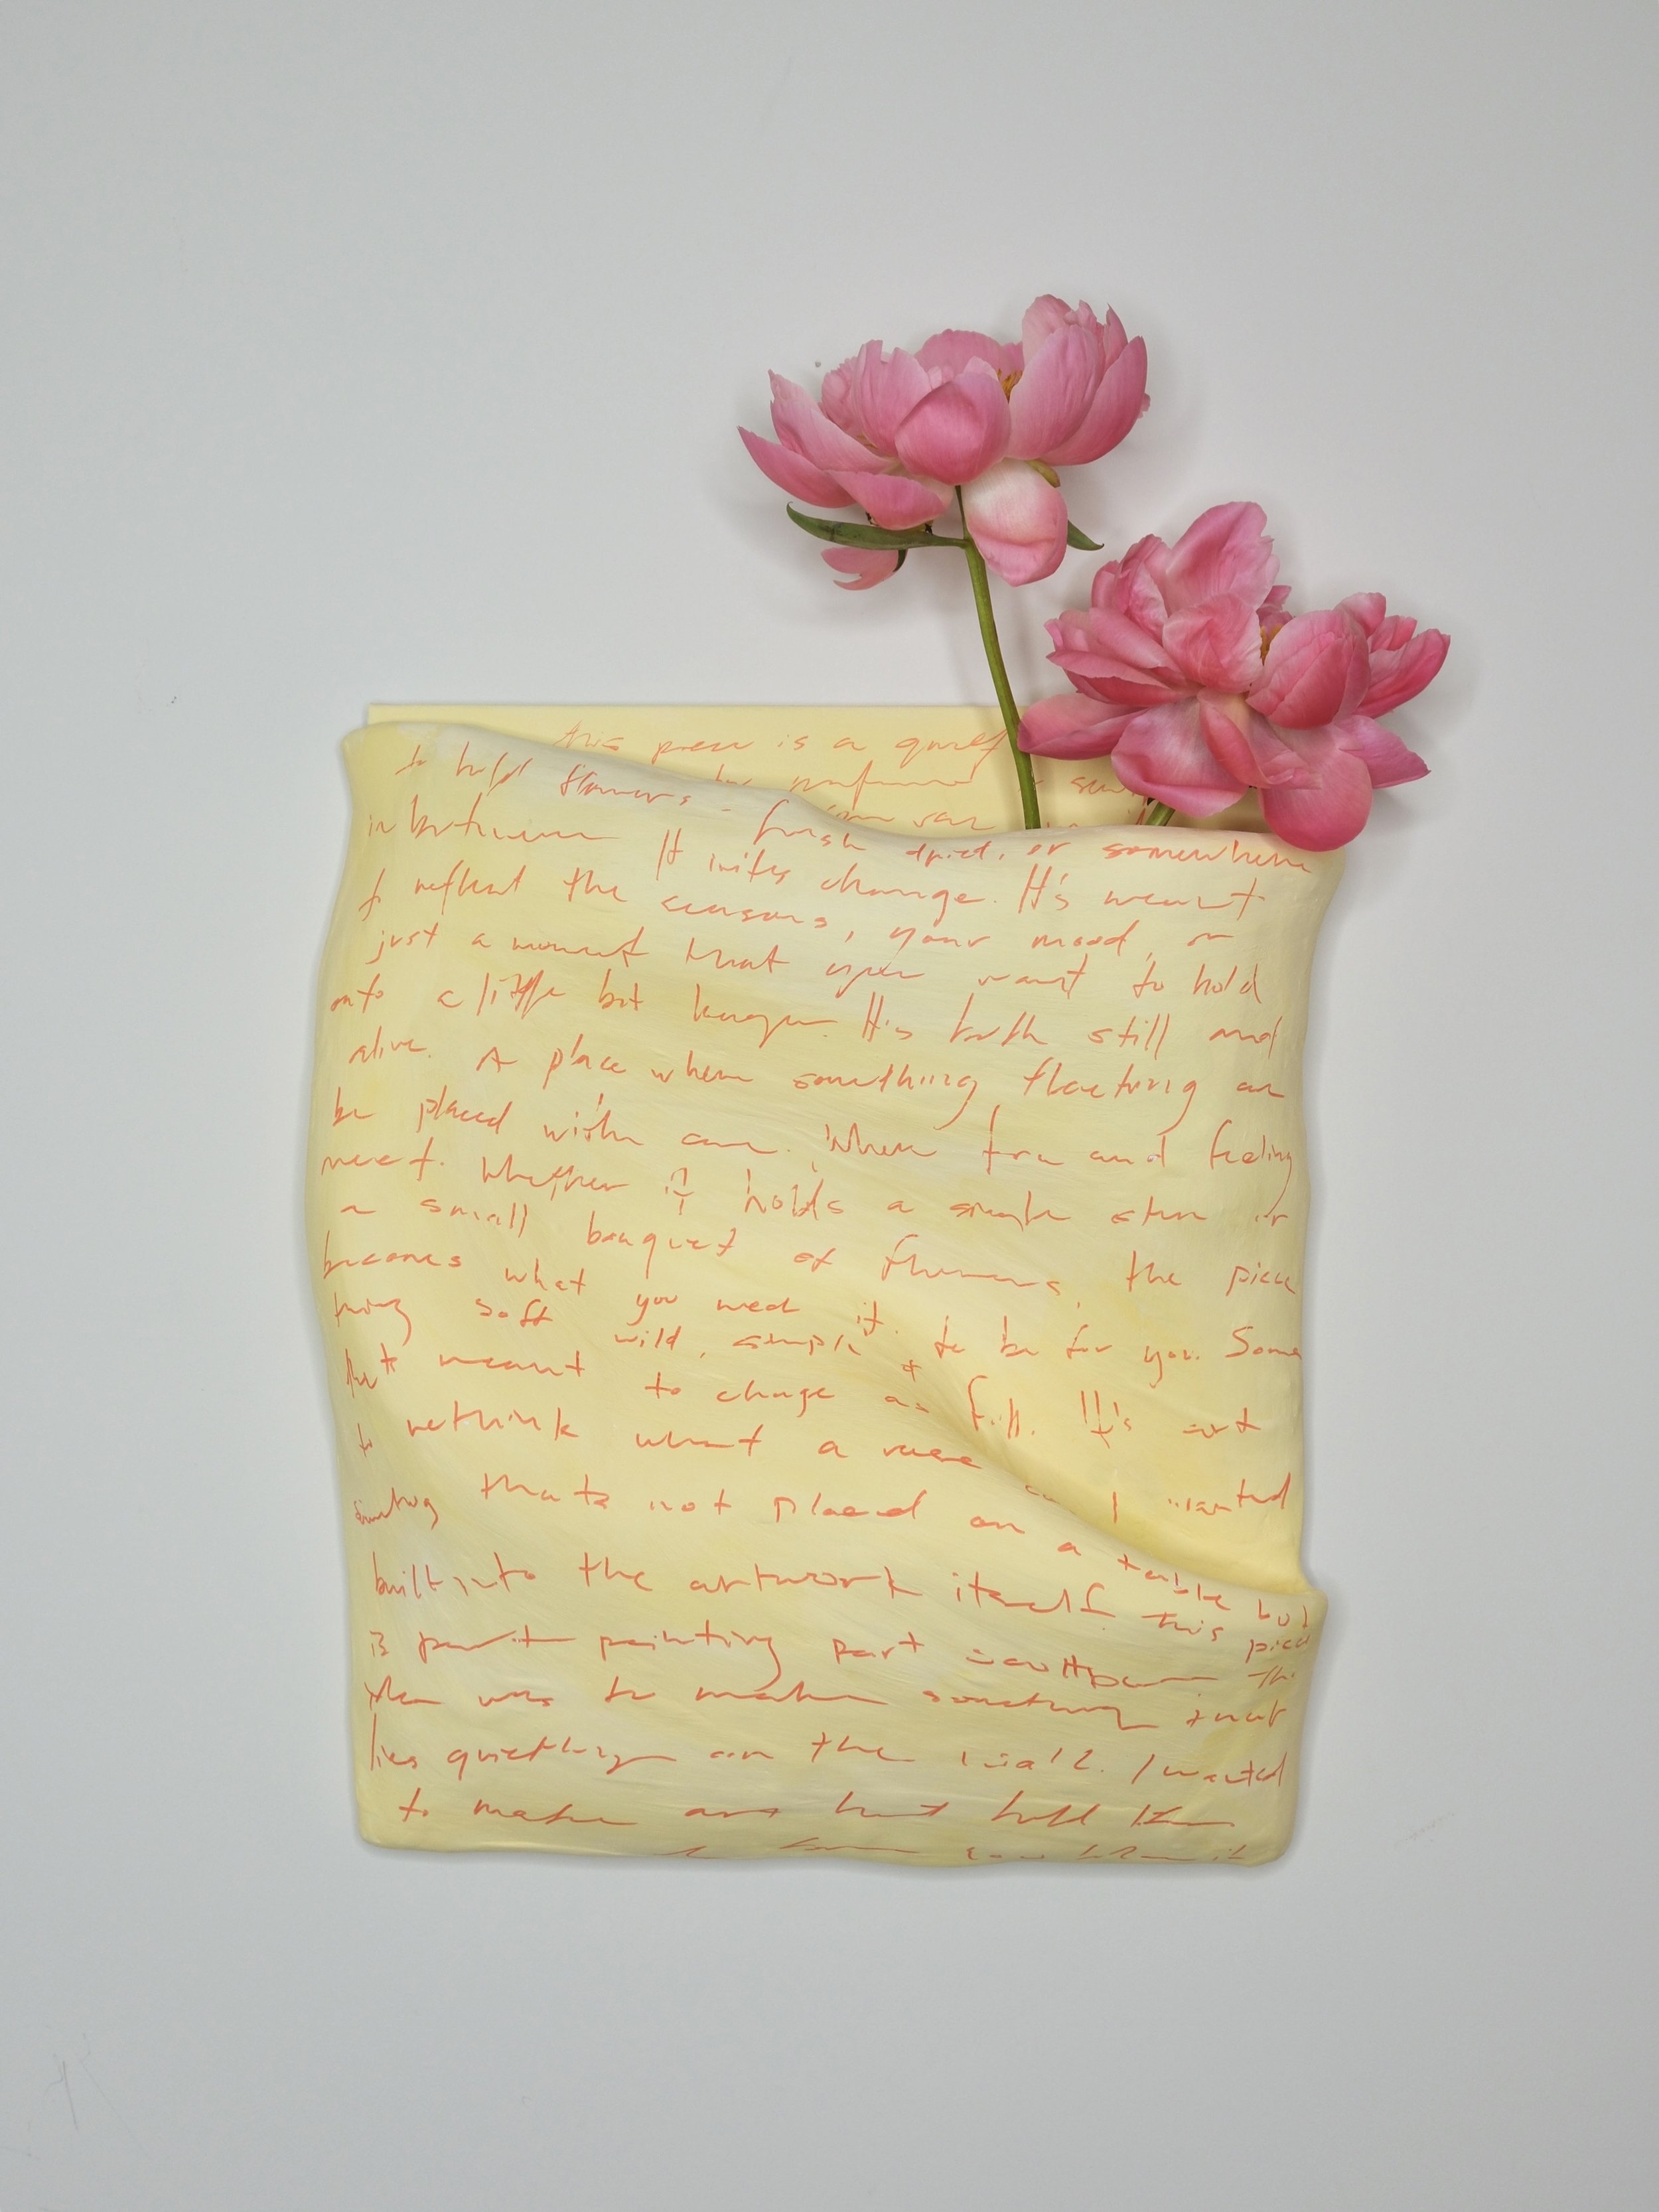 this piece is a quiet
to hold flowers - fresh dried, or somewhere
in between It invites change. It's meant
to reflect the seasons, your mood, or
just a moment that you want to hold
onto a little bit longer. It's both still and
alive. A place where something floating can
be placed with care. Where form and feeling
meet. Whether it holds a single stem or
a small bouquet of flowers, the piece
becomes what you need it to be for you. Some
thing soft wild, simple or full. It's art
that's meant to change as I wanted
to rethink what a vase can
something thats not placed on a table but
built into the artwork itself. This piece
is part painting part sculpture The
idea was to make something that
lives quietly on the wall. I wanted
to make art that